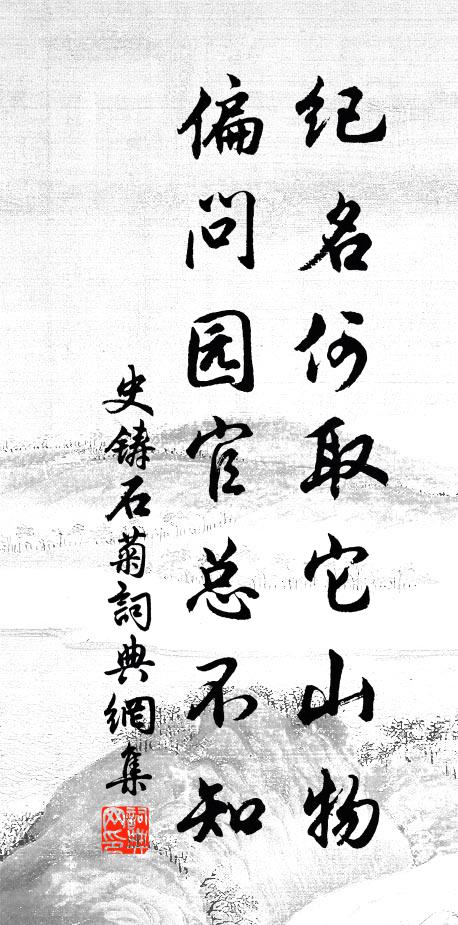 纪名何取它山物
偏问园官总不知
史鑄石菊詞典網集